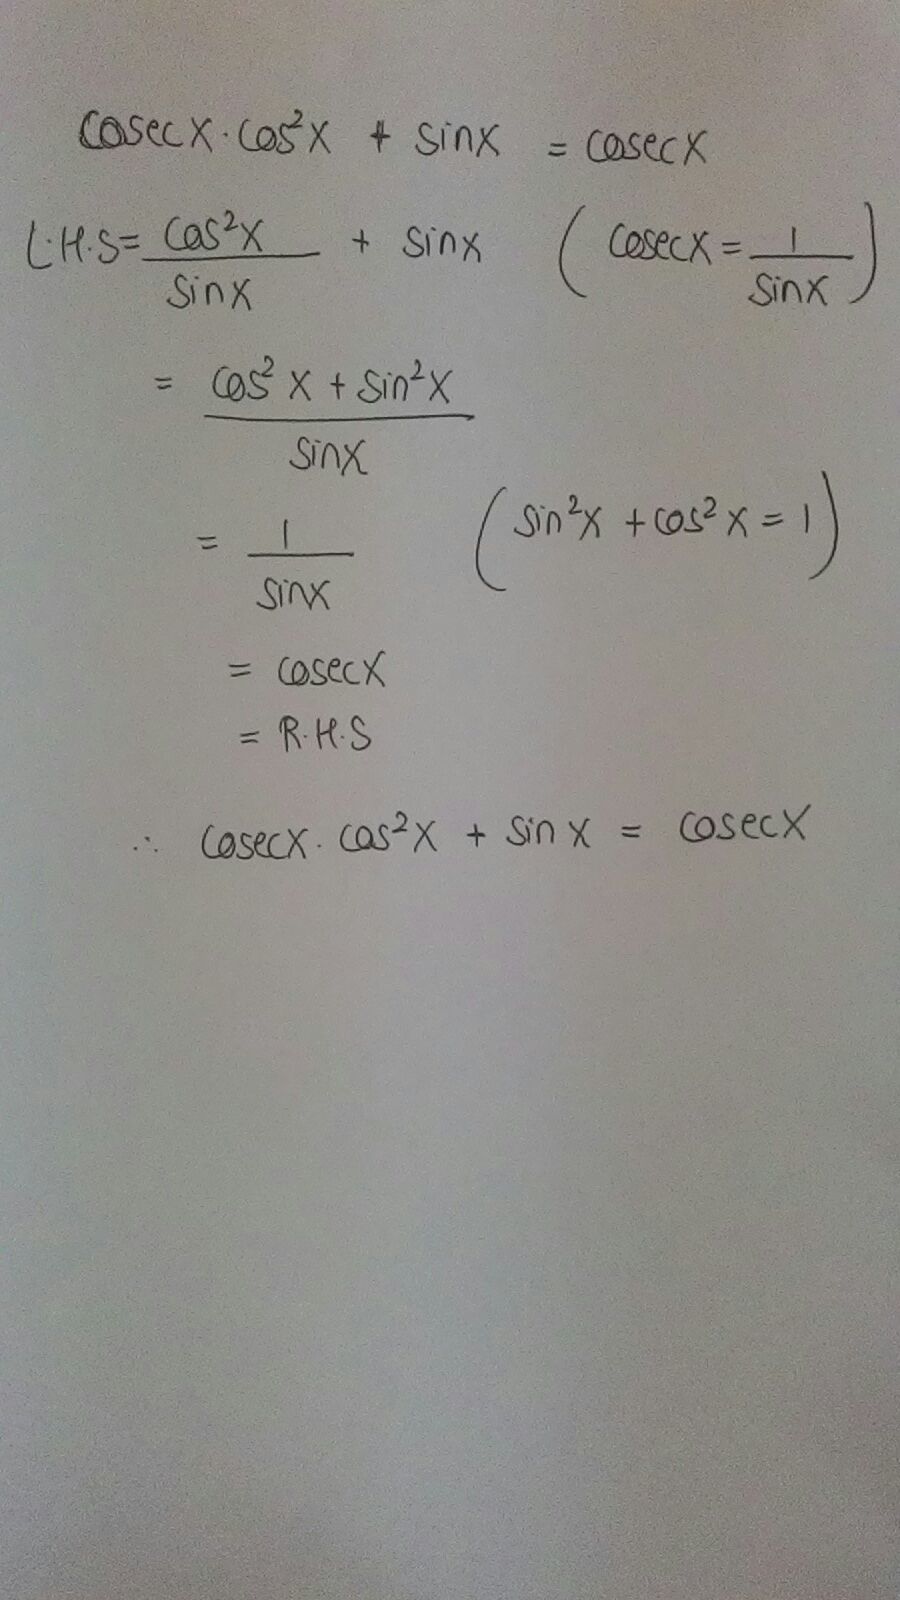 cosecx·cos²x + sinx = cosecx
L.H.S = cos²x/sinx + sinx (cosecx = 1/sinx)
= (cos²x + sin²x)/sinx
= 1/sinx (sin²x + cos²x = 1)
= cosecx
= R.H.S
∴ cosecx·cos²x + sinx = cosecx